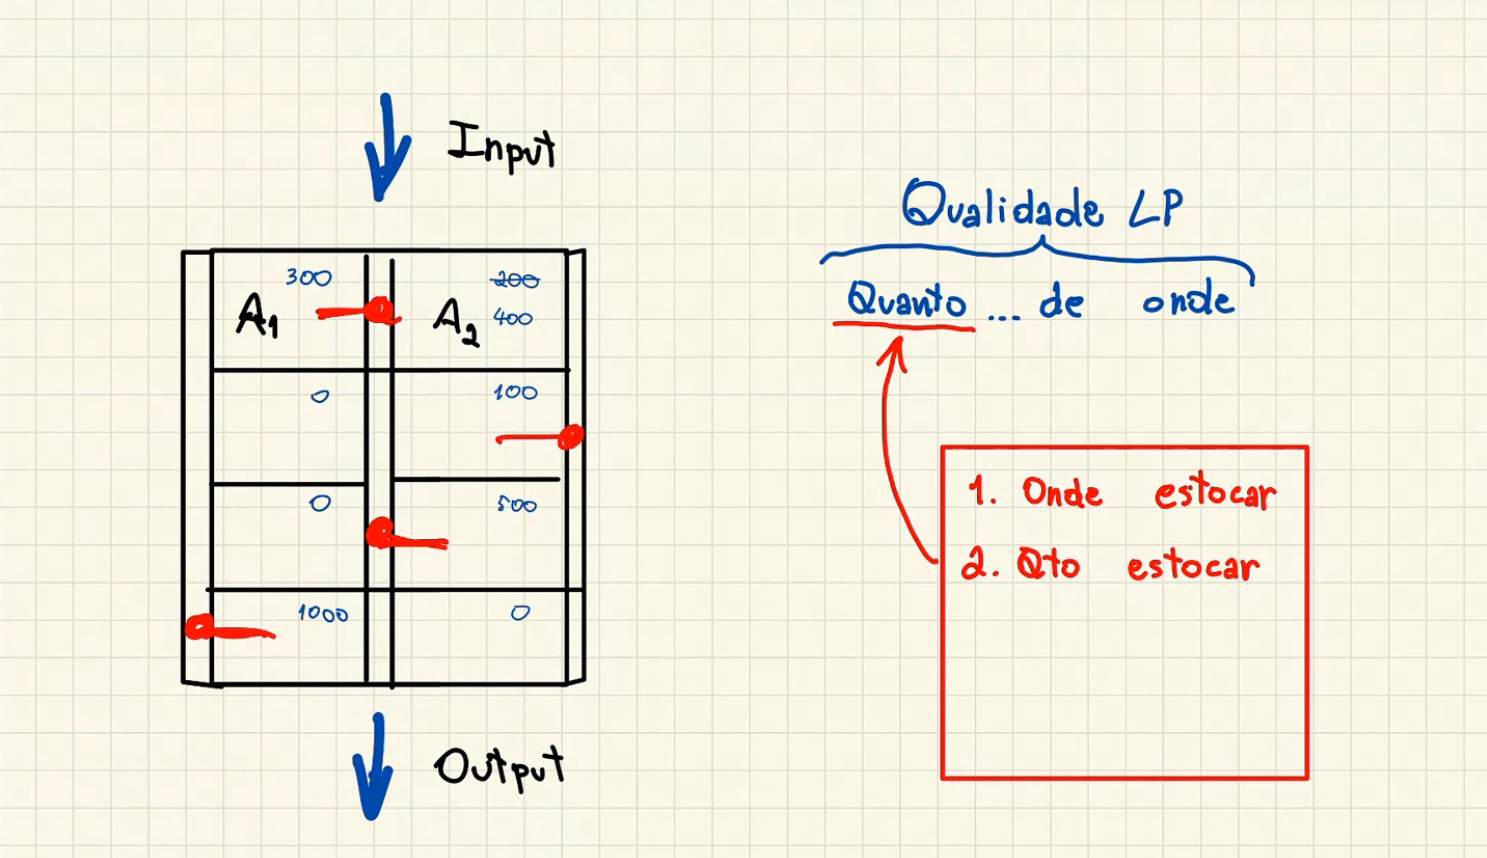 Input
300
200
A1
A2
400
0
100
0
500
1000
0
Output
Qualidade LP
Quanto ... de onde
1. Onde estocar
2. Qto estocar